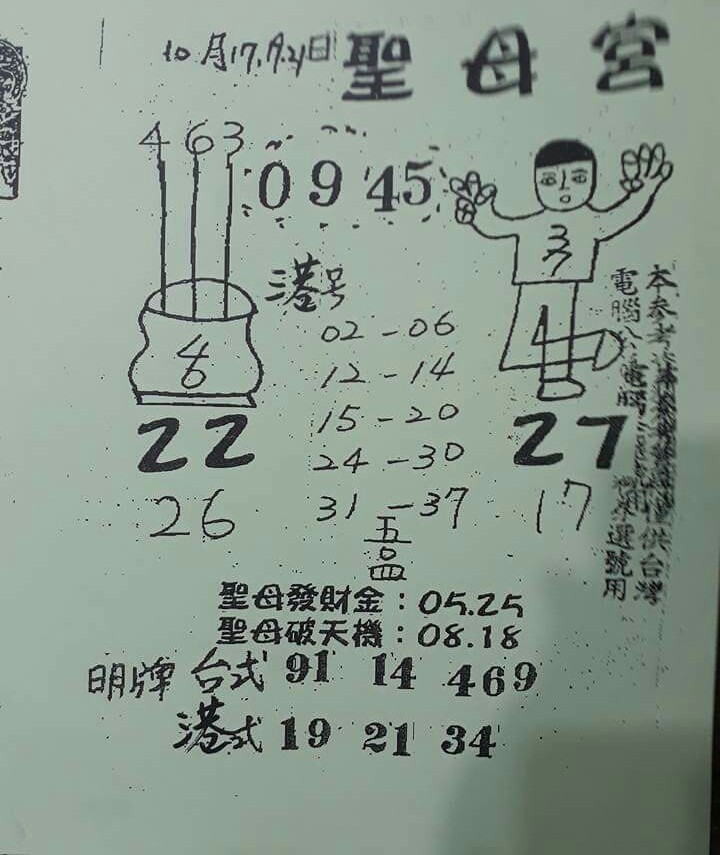 10月17.19.21日
聖母宮
4 6 3
0 9 45
37
港号
02-06
12-14
15-20
24-30
31-37
46
1
22
27
26
17
聖母發財金：05.25
聖母破天機：08.18
明牌 台式 91 14 469
港式 19 21 34
本參考
僅供台灣
電腦公
電腦
選號用